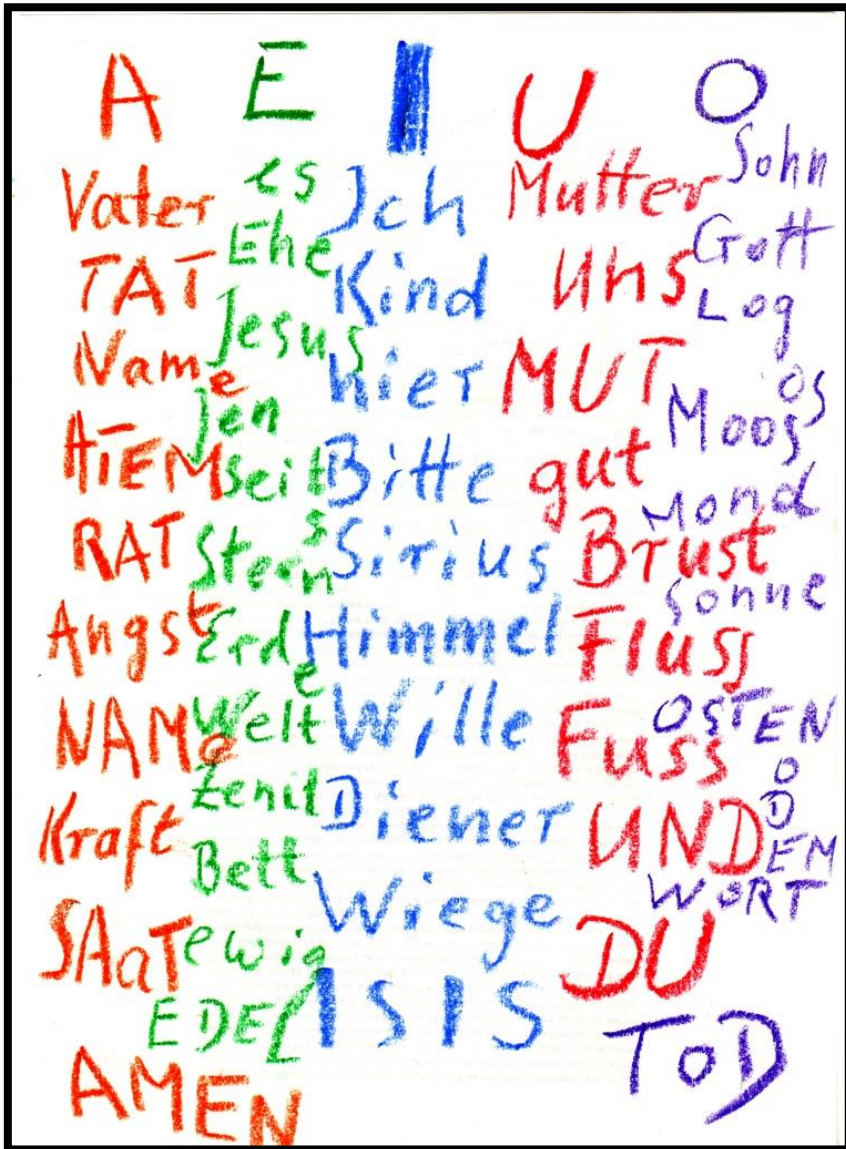 A
Vater
TAT
Name
ATEM
RAT
Angst
NAMe
Kraft
SAaT
AMEN
E
es
Ehe
Jesus
jen
seit
s
Stern
Erde
Welt
Zenit
Bett
ewig
EDEL
I
Ich
Kind
hier
Bitte
Sirius
Himmel
Wille
Diener
Wiege
ISIS
U
Mutter
uns
MUT
gut
Brust
Fluss
Fuss
UND
DU
O
Sohn
Gott
Log
os
Moos
Mond
Sonne
OSTEN
O
D
EM
WORT
TOD